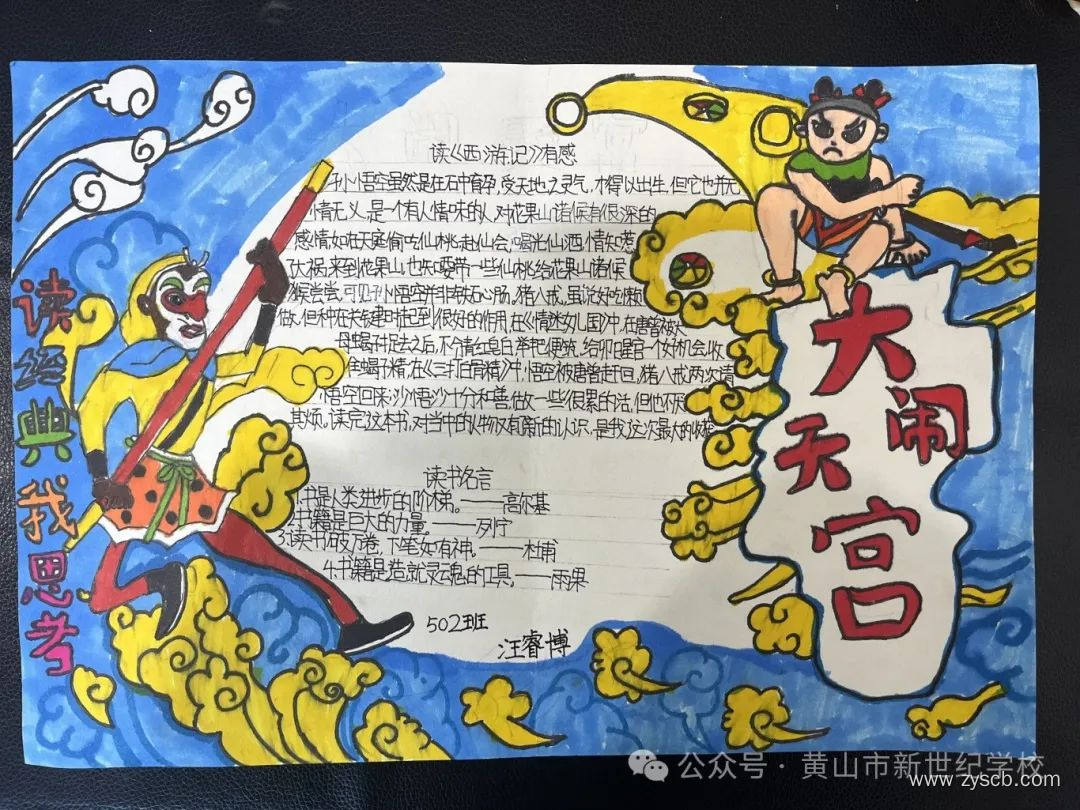 读经典我思考
大闹天宫
读《西游记》有感
孙悟空虽然是在石中育孕,受天地之灵气,才得以出生,但它也并无
情无义,是一个有人情味的人,对花果山诸候有很深的
感情,如在天庭偷吃仙桃,赴仙会,喝光仙酒,情知惹
大祸,来到花果山,也知要带一些仙桃给花果山诸候
猴尝尝,可见孙悟空并非铁石心肠。猪八戒,虽说好吃懒
做,但种在关键时起到很好的作用,在《情迷女儿国》中,在唐曾被
母蝎子捉去之后,不分青红皂白,举把便筑,给卯日星官一个好机会,收
蝎子精,在《三打白骨精》中,悟空被唐曾赶回,猪八戒两次请
悟空回来,沙悟沙十分和善,做一些很累的活,但也不厌
其烦。读完这本书,对当中的人物又有新的认识,是我这次最大的收获
读书名言
1.书是人类进步的阶梯。——高尔基
2.书籍是巨大的力量。——列宁
3.读书破万卷,下笔如有神。——杜甫
4.书籍是造就灵魂的工具。——雨果
502班
汪睿博
公众号·黄山市新世纪学校
www.zyscb.com